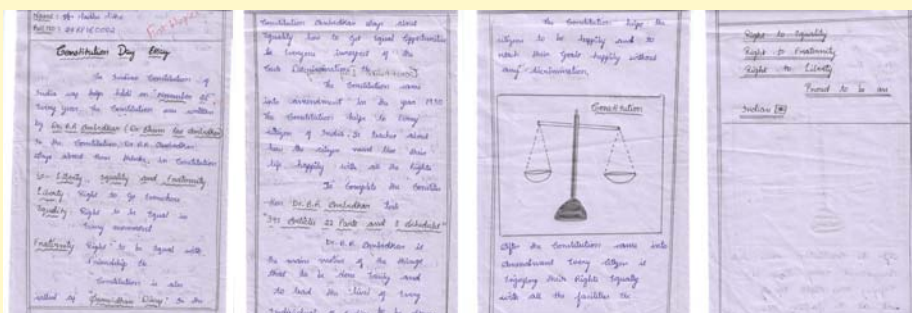 Name:
Roll No:
Constitution Day Essay
The Indian Constitution of
India was help held on "November 26"
Every year. The Constitution was written
by Dr. B.R. Ambedkar (Dr. Bhim Rao Ambedkar)
In the Constitution, Dr. B.R. Ambedkar
says about three in Constitution
Liberty, equality and Fraternity
Liberty Right to go
Equality Right to be Equal in
Every movement
Fraternity Right to be equal with
Friendship &
Constitution is also
called by In the
Constitution Ambedkar says about
Equality has to get Equal Opportunities
to Everyone of the
The Constitution came
into amendment in the year 1950
The Constitution helps to Every
citizen of India. It teaches about
how the citizen must live their
life happily with all the Rights
To Complete the Constitu-
tion Dr. B.R. Ambedkar
"395 Articles 22 Parts and 8 Schedules"
Dr. B.R. Ambedkar is
the main of the
that to be done Easily and
to lead the lives of Every
The Constitution helps the
citizen to be happily and to
reach their Goals happily without
any discrimination.
Constitution
After the Constitution came into
Amendment Every citizen is
Enjoying their Rights Equally
with all the facilities the
Right to Equality
Right to Fraternity
Right to Liberty
Proud to be an
Indian